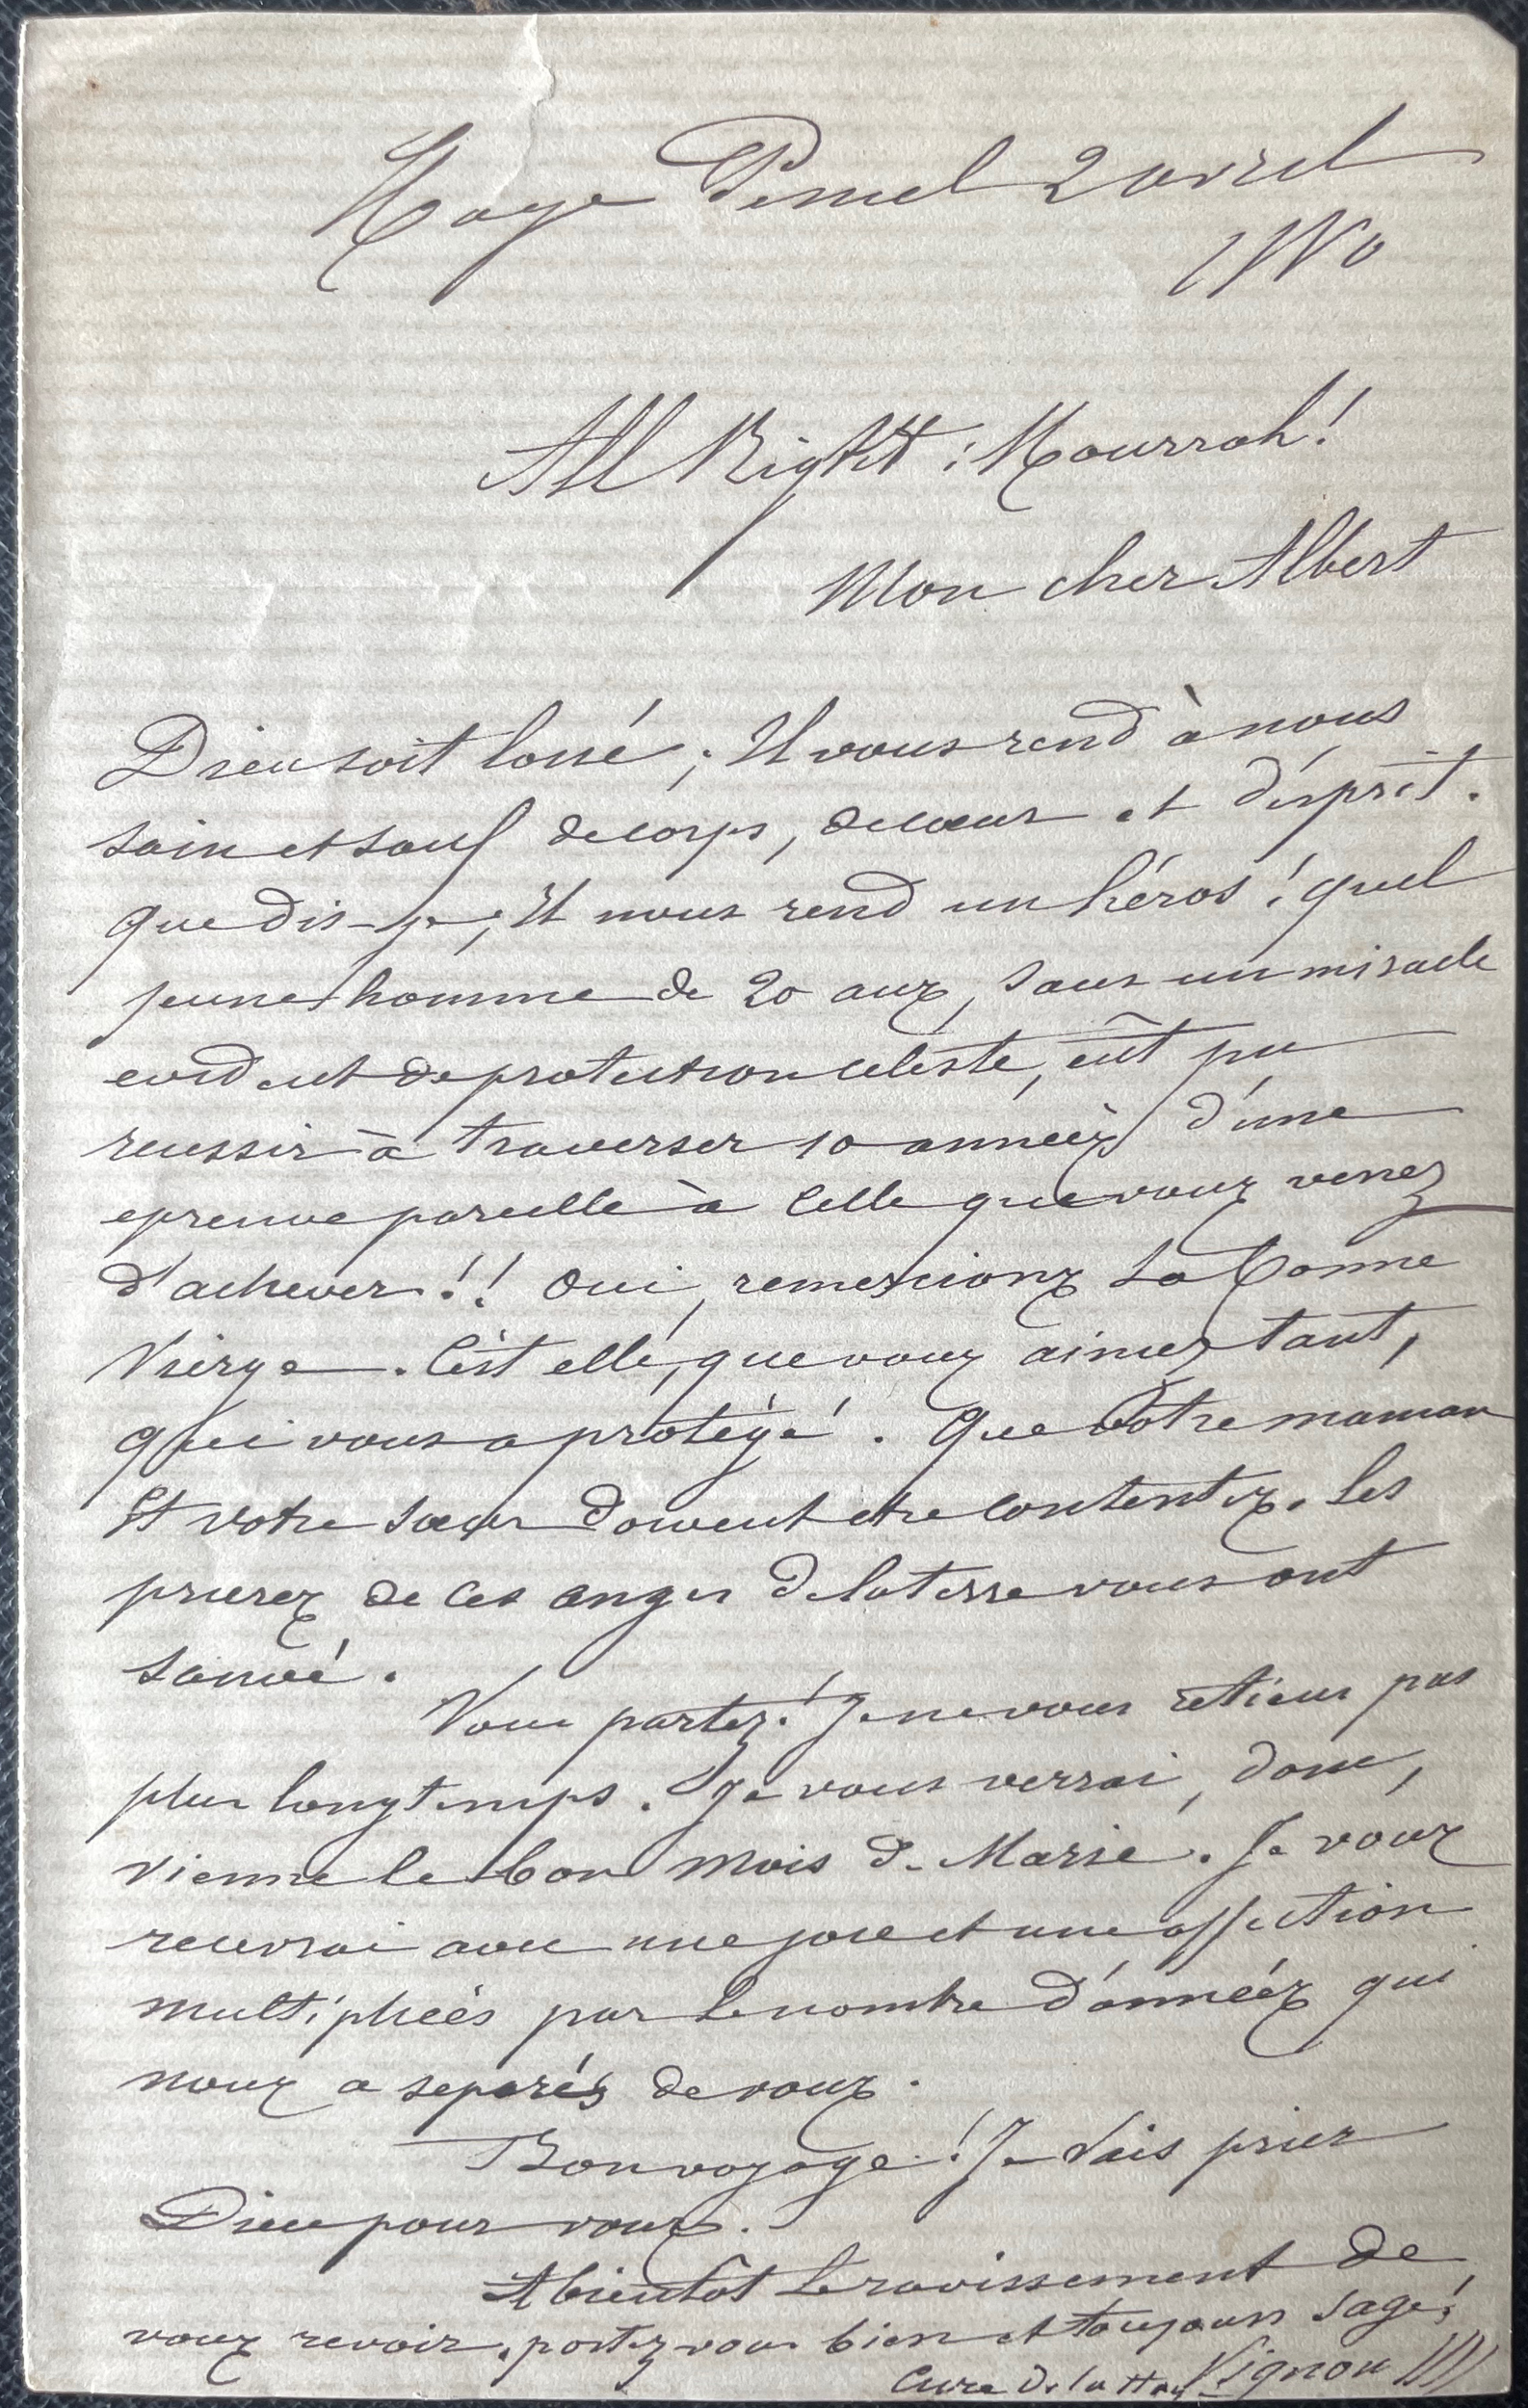 Haye Pesnel 2 avril
1880
All Right ! Hourrah !
Mon cher Albert
Dieu soit loué ; Il vous rend à nous
sain et sauf de corps, de cœur et d'esprit.
que dis-je, Il nous rend un héros ! quel
jeune homme de 20 ans, sans un miracle
evident de protection celeste, eût pu
reussir à traverser 10 années d'une
epreuve pareille à celle que vous venez
d'achever !! Oui, remercions la bonne
Vierge. C'est elle, que vous aimez tant,
qui vous a protégé. Que votre maman
Et votre sœur doivent etre contentes. Les
prieres de ces anges de la terre vous ont
sauvé.
Vous partez ! Je ne vous retiens pas
plus longtemps. Je vous verrai, donc,
vienne le bon mois de Marie. Je vous
recevrai avec une joie et une affection
multipliées par le nombre d'années qui
nous a separés de vous.
Bon voyage ! Je vais prier
Dieu pour vous.
A bientôt le ravissement de
vous revoir. portez vous bien et toujours sage !
Curé de la Haye Vignon